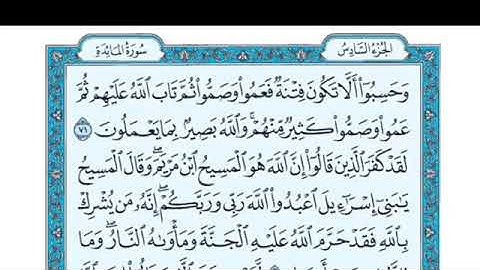 الجزء السادس
سورة المائدة
وَحَسِبُوٓا۟ أَلَّا تَكُونَ فِتْنَةٌ فَعَمُوا۟ وَصَمُّوا۟ ثُمَّ تَابَ ٱللَّهُ عَلَيْهِمْ ثُمَّ
عَمُوا۟ وَصَمُّوا۟ كَثِيرٌ مِّنْهُمْ ۚ وَٱللَّهُ بَصِيرٌۢ بِمَا يَعْمَلُونَ ٧١
لَقَدْ كَفَرَ ٱلَّذِينَ قَالُوٓا۟ إِنَّ ٱللَّهَ هُوَ ٱلْمَسِيحُ ٱبْنُ مَرْيَمَ ۖ وَقَالَ ٱلْمَسِيحُ
يَٰبَنِىٓ إِسْرَٰٓءِيلَ ٱعْبُدُوا۟ ٱللَّهَ رَبِّى وَرَبَّكُمْ ۖ إِنَّهُۥ مَن يُشْرِكْ
بِٱللَّهِ فَقَدْ حَرَّمَ ٱللَّهُ عَلَيْهِ ٱلْجَنَّةَ وَمَأْوَىٰهُ ٱلنَّارُ ۖ وَمَا